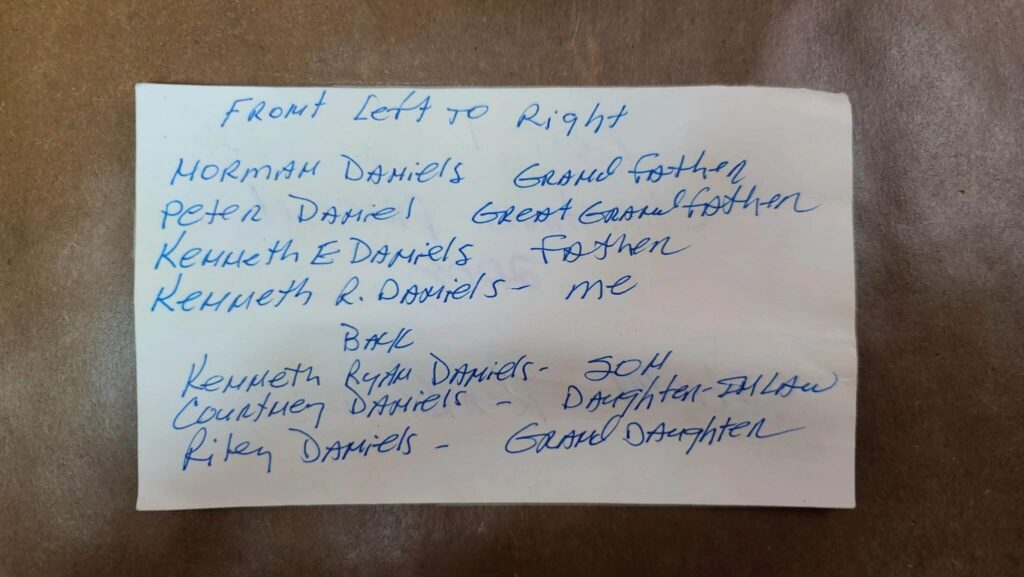 Front Left to Right
Norman Daniels Grandfather
Peter Daniel Great Grandfather
Kenneth E Daniels Father
Kenneth R. Daniels - me
Back
Kenneth Ryan Daniels - Son
Courtney Daniels - Daughter-In Law
Riley Daniels - Grand Daughter